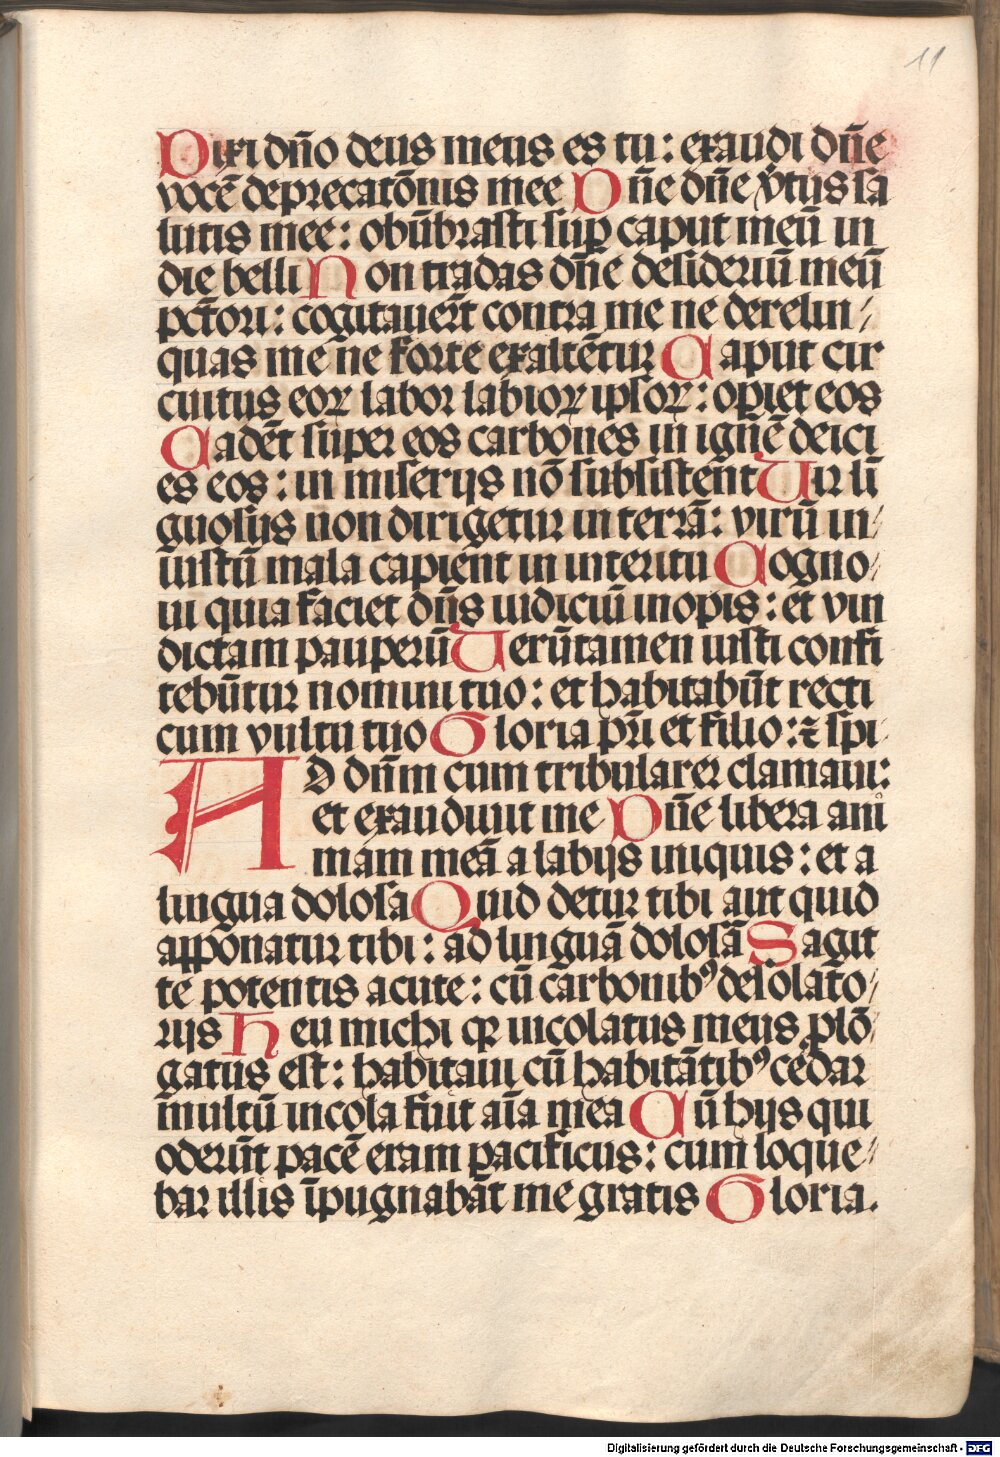 11
Dixi dño deus meus es tu: exaudi dñe
vocē deprecatōnis mee Dñe dñe v̄tus sa
lutis mee: obūbrasti suꝑ caput meū in
die belli Non tradas dñe desideriū meū
pct̄ori: cogitauer̄t contra me ne derelin/
quas me ne forte exaltētur Caput cir
cuitus eoꝝ labor labioꝝ ipsoꝝ: opiet eos
Cadēt super eos carbones in ignē deici
es eos: in miserijs nō subsistent̄ Uir lī
guosus non dirigetur in terrā: virū in/
iustū mala capient in interitu Cogno/
ui quia faciet dñs iudiciū inopis: et vin
dictam pauperū Uerūtamen iusti confi
tebūtur nomini tuo: et habitabūt recti
cum vultu tuo Gloria pr̄i et filio: ⁊ spi
AD dn̄m cum tribularer clamaui:
et exaudiuit me Dñe libera ani
mam meā a labijs iniquis: et a
lingua dolosa Quid detur tibi aut quid
apponatur tibi: ad linguā dolosā Sagit
te potentis acute: cū carbonibꝰ desolato/
rijs Heu michi qꝛ incolatus meus ꝓlō
gatus est: habitaui cū habitātibꝰ cedar
multū incola fuit aīa mea Cū hijs qui
oderūt pacē eram pacificus: cum loque/
bar illis īpugnabāt me gratis Gloria.
Digitalisierung gefördert durch die Deutsche Forschungsgemeinschaft - DFG